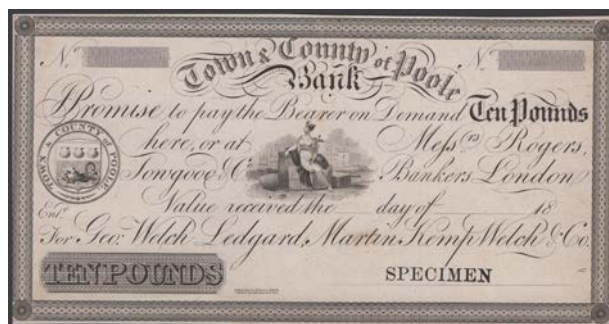 No. No.
Town & County of Poole
Bank
I Promise to pay the Bearer on Demand Ten Pounds
here, or at Messrs Rogers,
Towgood & Co. Bankers London
Value received the day of 18
Entd.
For Geo: Welch Ledgard, Martin Kemp Welch & Co.
TEN POUNDS
SPECIMEN
TOWN & COUNTY of POOLE